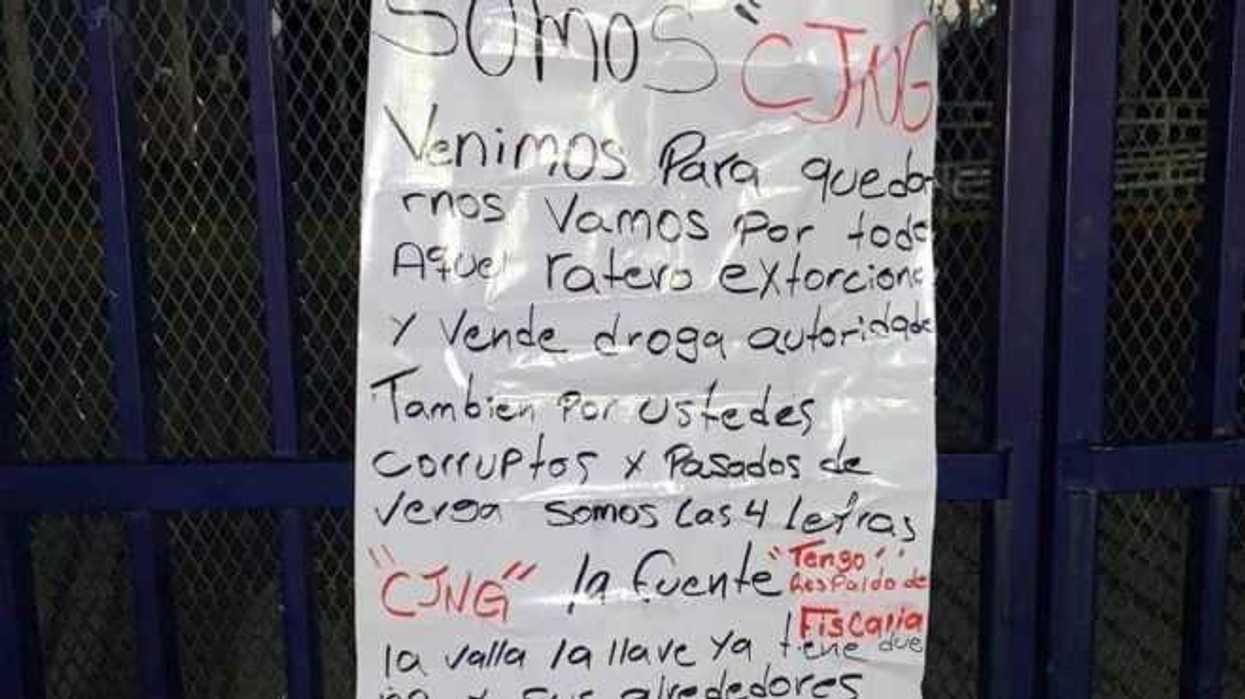 SOMOS "CJNG
Venimos Para quedar
rnos Vamos Por todo
Aquel ratero extorcione
y vende droga autoridade
Tambien Por ustedes
corruptos x Pasados de
verga somos las 4 letras
"CJNG" la fuente "Tengo"
Respaldo de
Fiscalia
la valla la llave ya tiene due
ño y sus alrededores